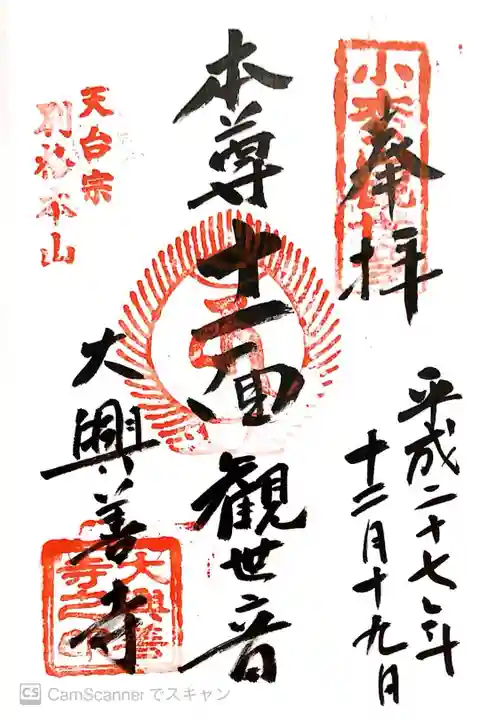 奉拝
平成二十七年
十二月十九日
本尊十一面観世音
大興善寺
天台宗
別格本山
大興善
寺之印
CS CamScanner でスキャン